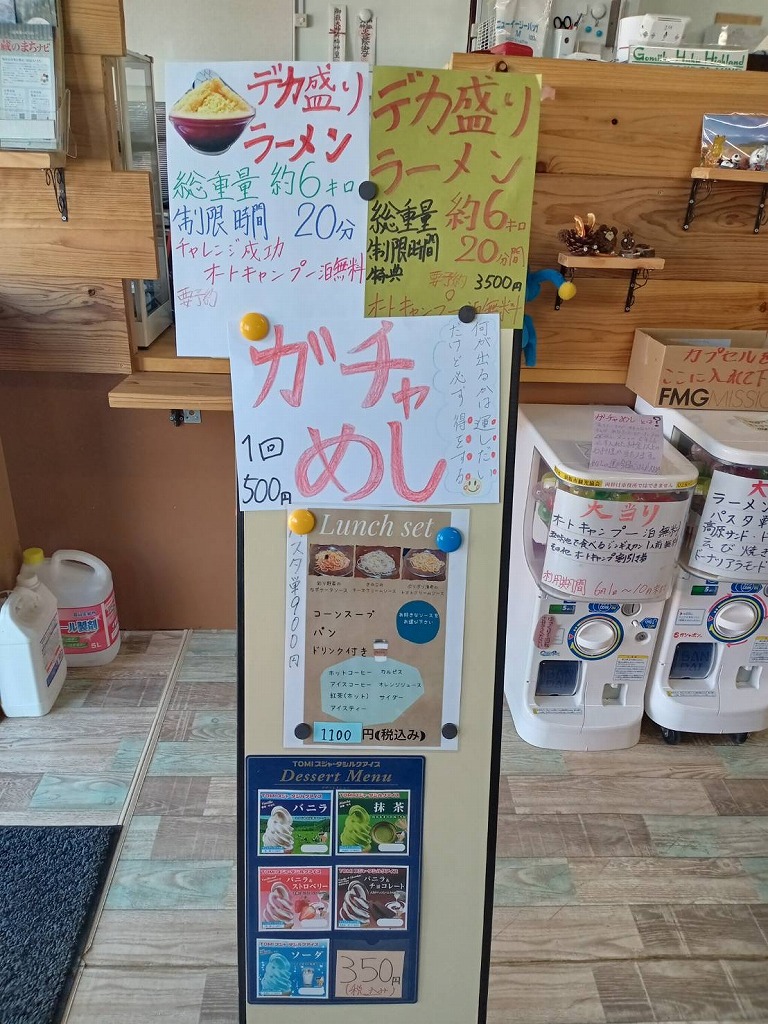 デカ盛り
ラーメン
総重量 約6キロ
制限時間 20分
チャレンジ成功
オートキャンプ一泊無料
要予約
デカ盛り
ラーメン
総重量 約6キロ
制限時間 20分間
特典 要予約 3500円
オートキャンプ一泊無料!
ガチャ
めし
1回
500円
何が出るかは運しだい
だけど必ず得をする
Lunch set
パスタ単900円
コーンスープ
パン
ドリンク付き
お好きなソースを
お選び下さい
ホットコーヒー カルピス
アイスコーヒー オレンジジュース
紅茶(ホット) サイダー
アイスティー
1100円(税込み)
TOMIスジャータシルクアイス
Dessert Menu
バニラ
抹茶
バニラ&
ストロベリー
バニラ&
チョコレート
ソーダ
350円
カプセルを
ここに入れて下
FMG MISSION
大当り
オートキャンプ一泊無料
その他 オートキャンプ割引き券
利用期間 6月1日〜10月末
ラーメン
パスタ単
高原サンド・ド
えび焼き
ドーナツアラモード
蔵のまちナビ
ール製剤
5L